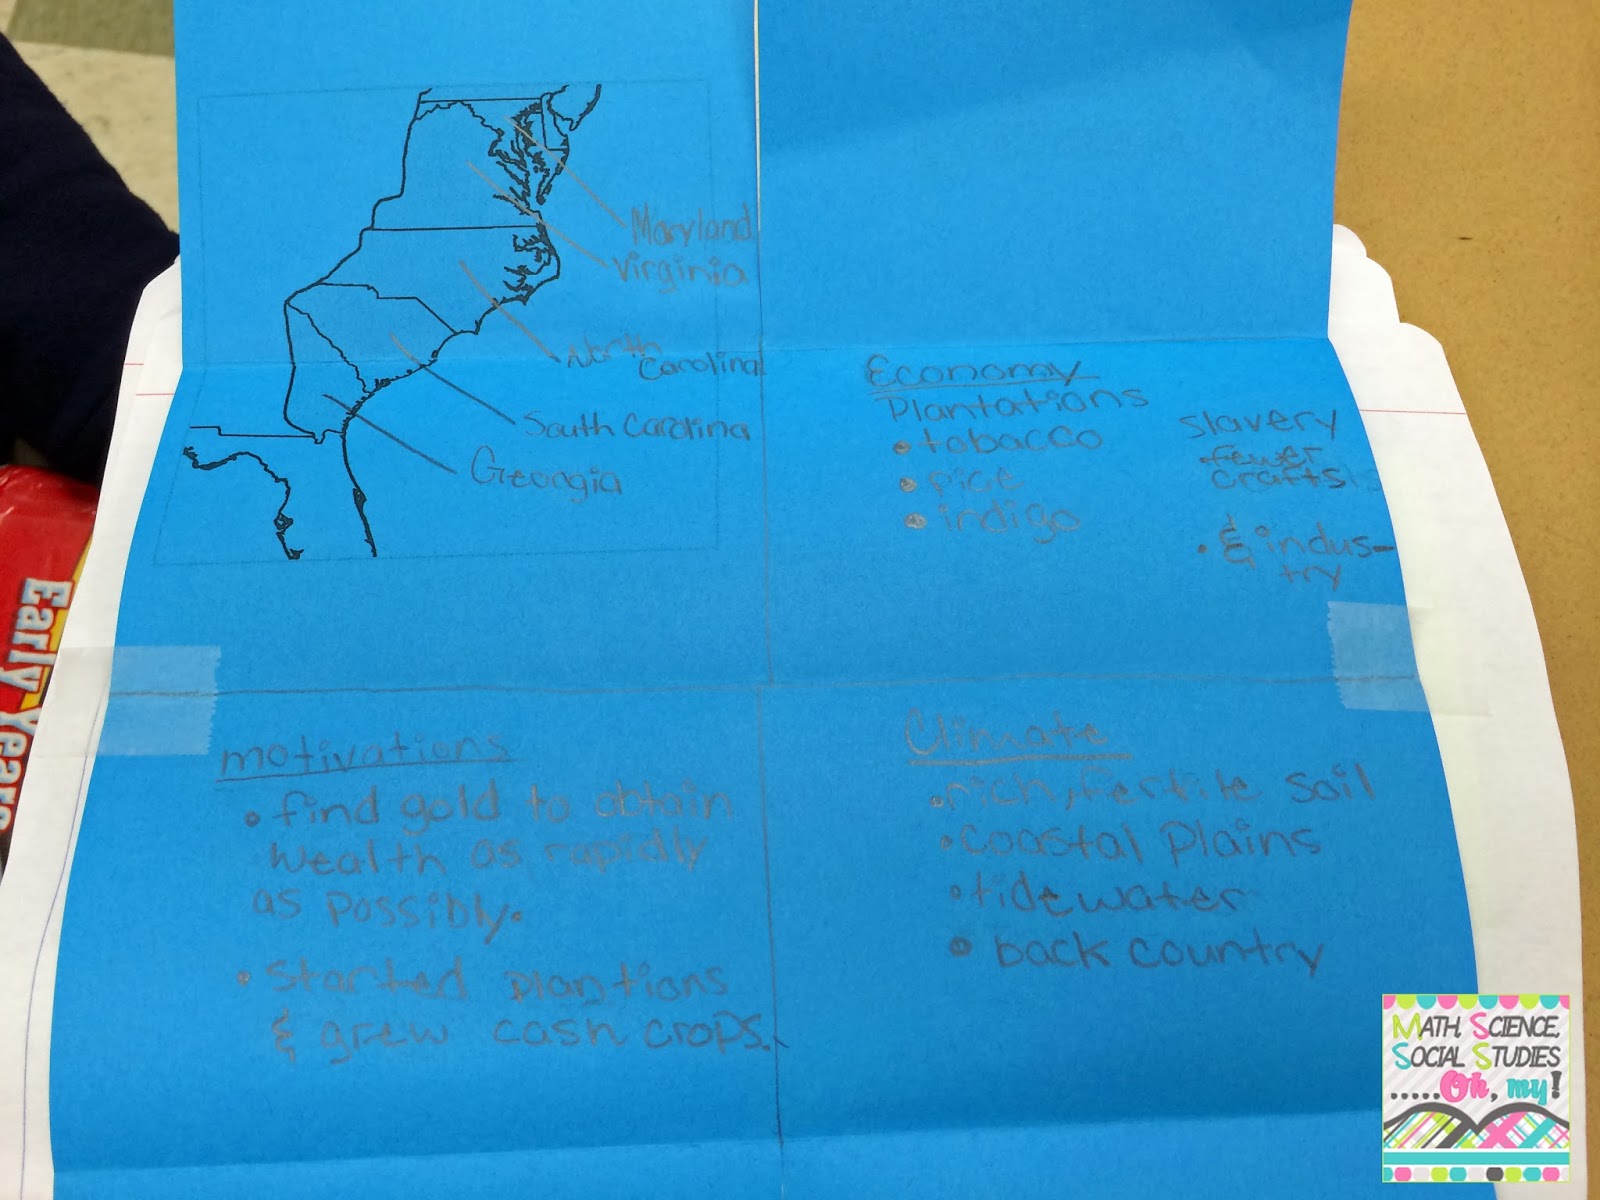 Maryland
Virginia
North
Carolina
South Carolina
Georgia
Economy
Plantations
• tobacco
• rice
• indigo
Slavery
fewer
crafts
• & indus-
try
motivations
• find gold to obtain
wealth as rapidly
as possibly.
• Started plantions
& grew cash crops.
Climate
• rich, fertile soil
• coastal plains
• tidewater
• back country
Early Years
MATH, SCIENCE,
SOCIAL STUDIES
.....Oh, my!